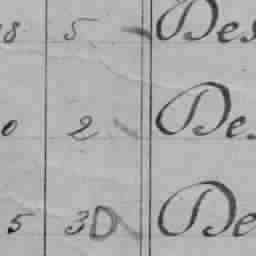 8 5 Des
0 2 Des
5 3D De